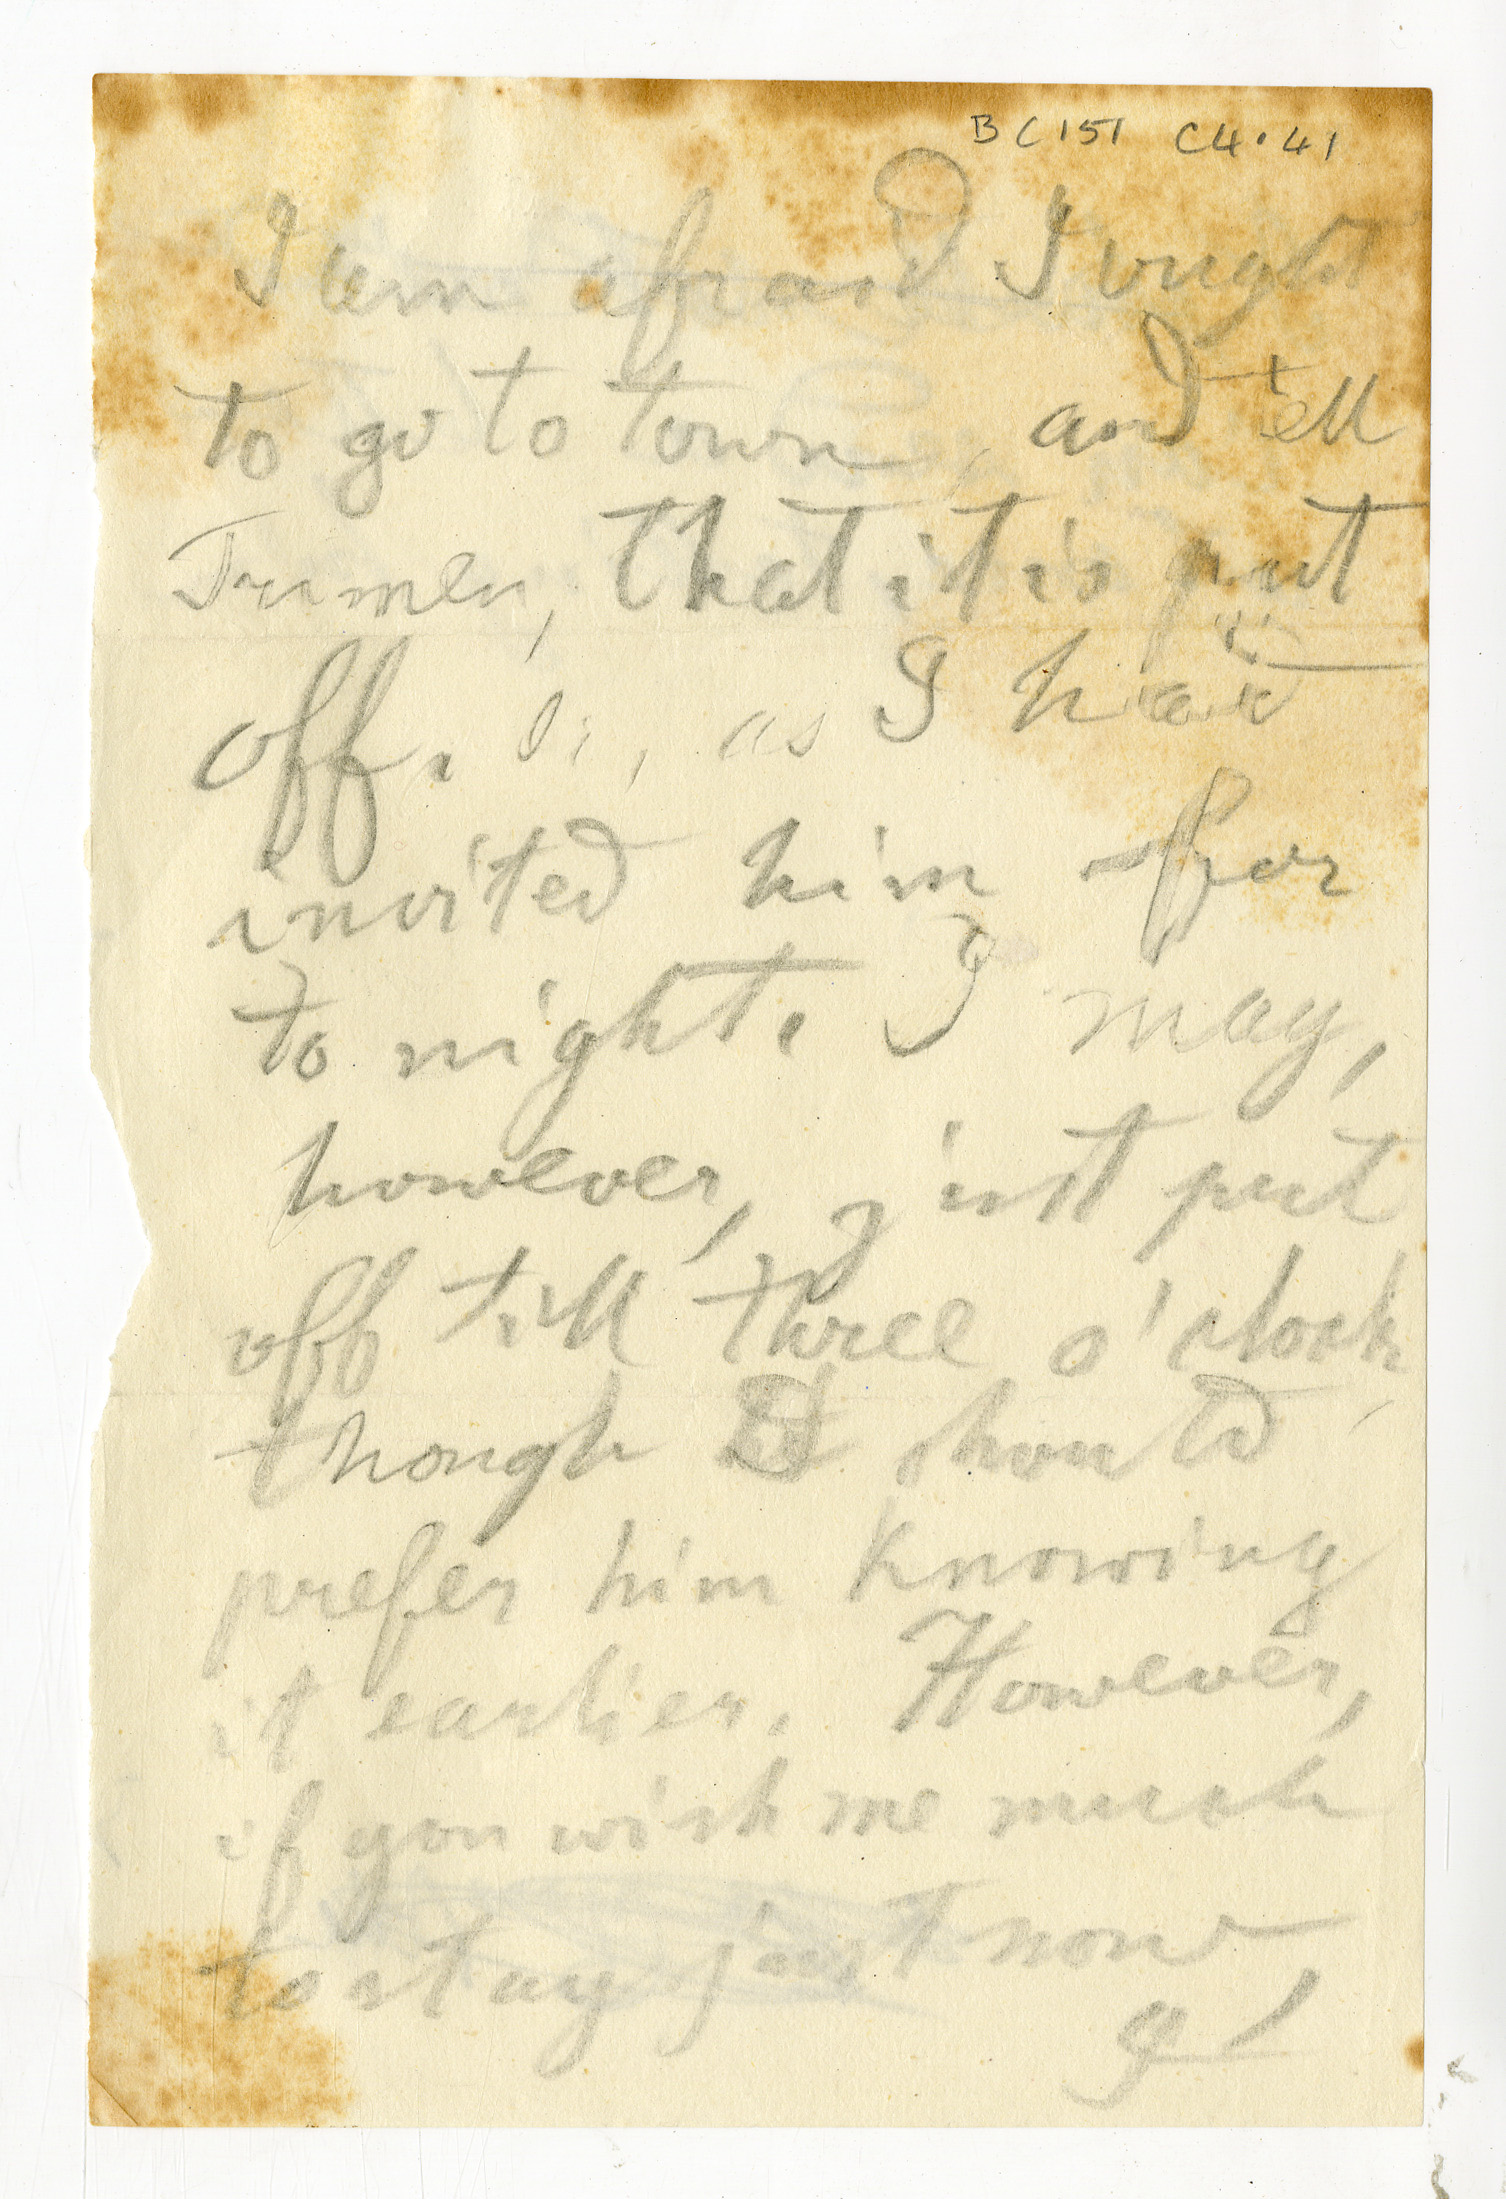 BC151 C4.41
I am afraid I ought
to go to town, and tell
Trimen, that it is put
off. as I had
invited him for
to night. I may,
however, just put
off till three o'clock,
though I should
prefer him knowing
it earlier. However,
if you wish me much
to stay just now,
I